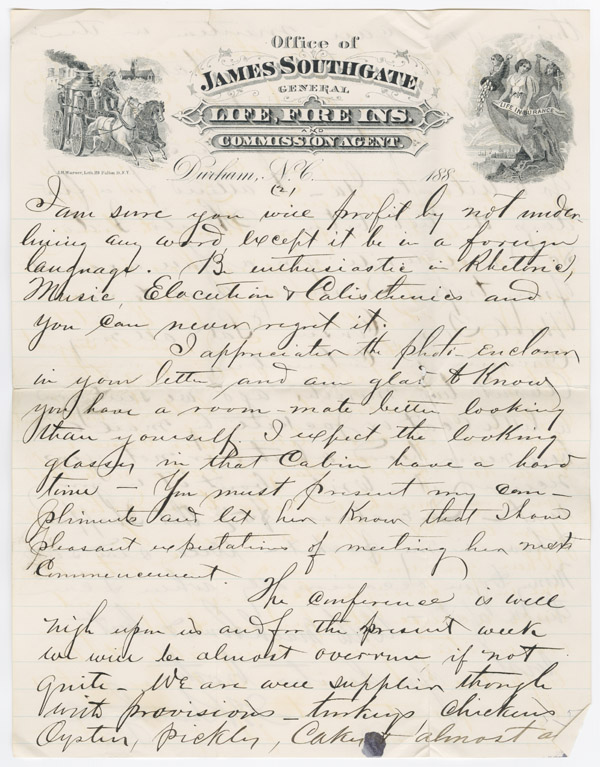 Office of
JAMES SOUTHGATE
GENERAL
LIFE, FIRE INS.
AND
COMMISSION AGENT.
LIFE INSURANCE
Durham, N.C. 188
(2)
I am sure you will profit by not under-
lining any word, except it be in a foreign
language. Be enthusiastic in Rhetoric,
Music, Elocution & Calisthenics and
you can never regret it.
I appreciate the photo enclosed
in your letter and am glad to know
you have a room-mate better looking
than yourself. I expect the looking
glasses in that Cabin have a hard
time - You must present my com-
pliments and let her know that I have
pleasant expectations of meeting her next
Commencement.
The conference is well
nigh upon us and for the present week
we will be almost overrun, if not
quite - We are well supplied though
with provisions - turkeys chickens
Oysters, pickles, Cakes almost a